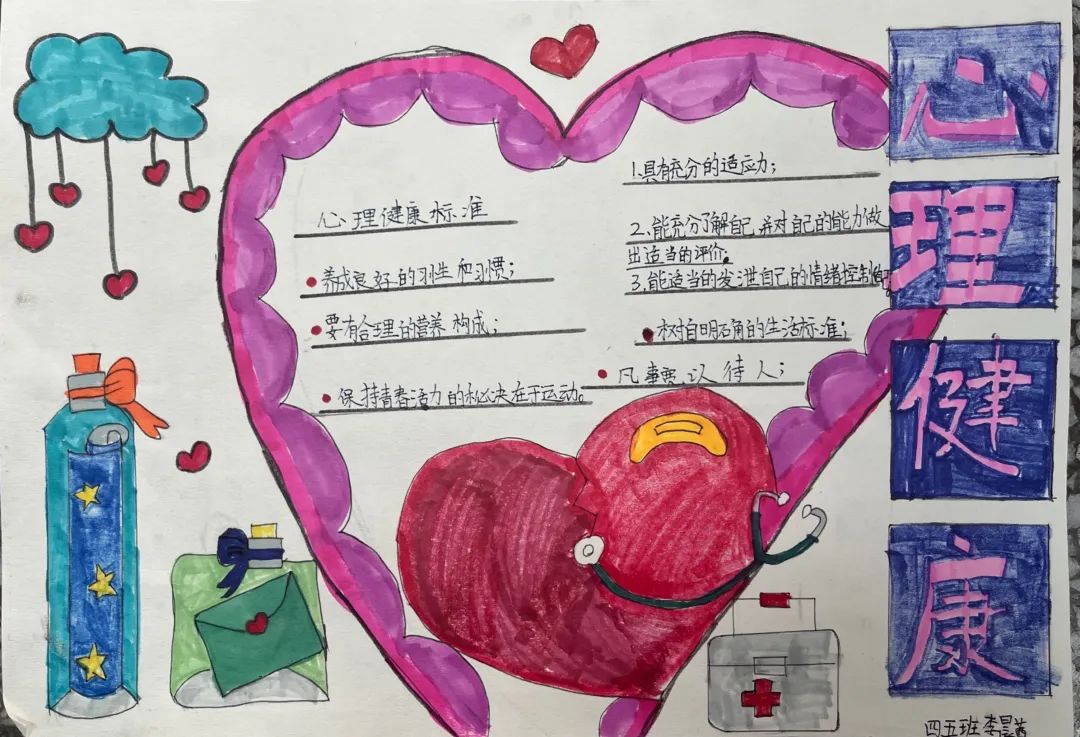 心理健康
心理健康标准
养成良好的习性和习惯;
要有合理的营养构成;
保持青春活力的秘决在于运动。
1.具有充分的适应力;
2、能充分了解自己,并对自己的能力做
出适当的评价。
3、能适当的发泄自己的情绪控制自
树自明确的生活标准;
凡事 以待人;
四五班李